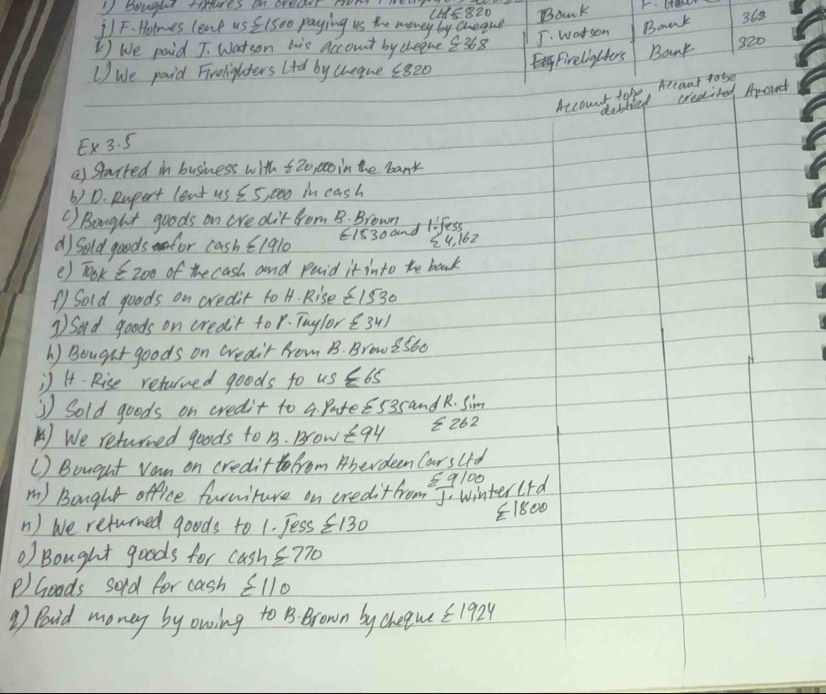 i) Bought fixtures on credit from
Ltd £820
j) F. Holmes lent us £1500 paying us the money by cheque Bank
k) We paid J. Watson his account by cheque £368 J. Watson Bank 368
l) We paid Firelighters Ltd by cheque £820 Firelighters Bank 820
Account to be debited Account to be credited Amount
Ex 3.5
a) Started in business with £20,000 in the bank
b) D. Rupert lent us £5,000 in cash
c) Bought goods on credit from B. Brown
£1530 and I. Jess
£4,162
d) Sold goods for cash £1910
e) Took £200 of the cash and paid it into the bank
f) Sold goods on credit to H. Rise £1530
g) Sold goods on credit to P. Taylor £341
h) Bought goods on credit from B. Brow £560
i) H. Rise returned goods to us £65
j) Sold goods on credit to G. Pate £535 and R. Sim
£262
k) We returned goods to B. Brow £94
l) Bought van on credit from Aberdeen Cars Ltd
£9100
m) Bought office furniture on credit from J. Winter Ltd
£1800
n) We returned goods to I. Jess £130
o) Bought goods for cash £770
p) Goods sold for cash £110
q) Paid money by owing to B. Brown by cheque £1924